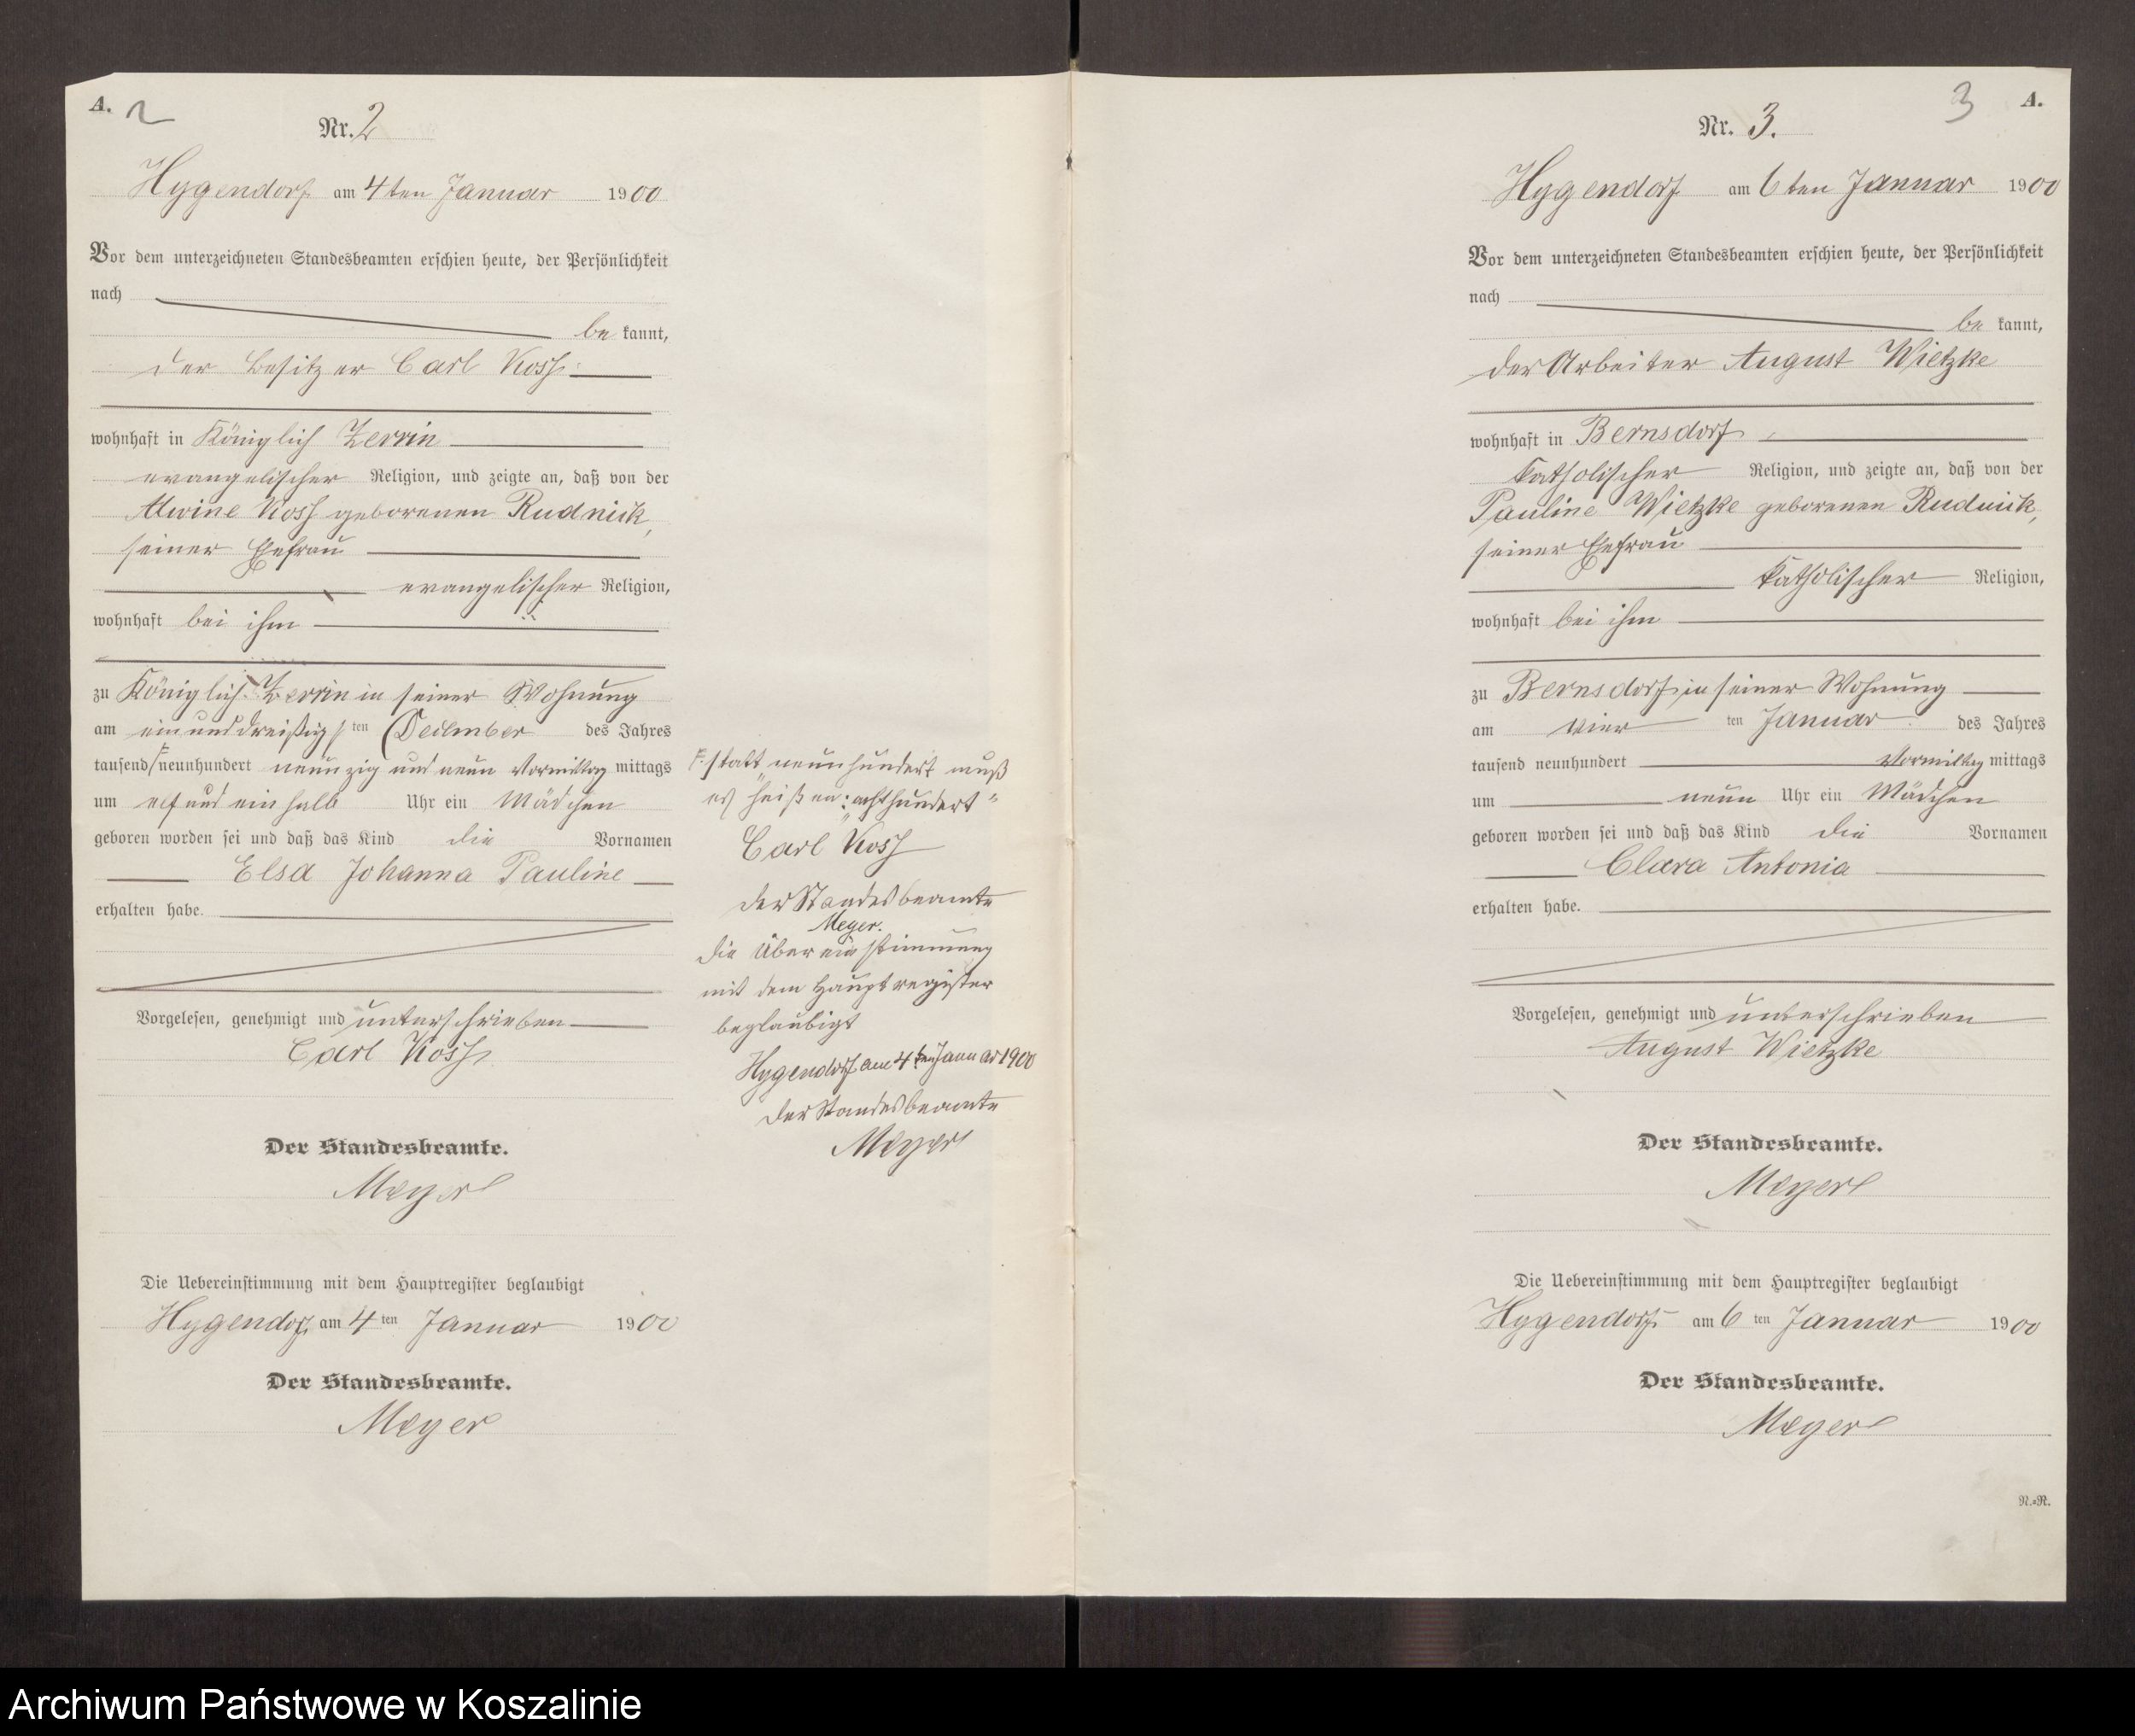 A. 2
Nr. 2
Hygendorf am 4ten Januar 1900
Vor dem unterzeichneten Standesbeamten erschien heute, der Persönlichkeit
nach
be kannt,
der Besitzer Carl Koss
wohnhaft in Königlich Zerrin
evangelischer Religion, und zeigte an, daß von der
Alwine Koss geborenen Rudnick,
seiner Ehefrau
evangelischer Religion,
wohnhaft bei ihm
zu Königlich Zerrin in seiner Wohnung
am einunddreißigsten Dezember des Jahres
tausend neunhundert neunzig und neun Vormittag mittags
um elf und ein halb Uhr ein Mädchen
geboren worden sei und daß das Kind die Vornamen
Elsa Johanna Pauline
erhalten habe.
Vorgelesen, genehmigt und unterschrieben
Carl Koss
Der Standesbeamte.
Meyer
Die Uebereinstimmung mit dem Hauptregister beglaubigt
Hygendorf am 4ten Januar 1900
Der Standesbeamte.
Meyer
F. statt "neunhundert muß
es heißen: "achthundert"
Carl Koss
der Standesbeamte
Meyer.
die Übereinstimmung
mit dem Hauptregister
beglaubigt
Hygendorf am 4ten Januar 1900
der Standesbeamte
Meyer
3 A.
Nr. 3.
Hygendorf am 6ten Januar 1900
Vor dem unterzeichneten Standesbeamten erschien heute, der Persönlichkeit
nach
be kannt,
der Arbeiter August Wietzke
wohnhaft in Bernsdorf
katholischer Religion, und zeigte an, daß von der
Pauline Wietzke geborenen Rudnick,
seiner Ehefrau
katholischer Religion,
wohnhaft bei ihm
zu Bernsdorf in seiner Wohnung
am vier ten Januar des Jahres
tausend neunhundert Vormittag mittags
um neun Uhr ein Mädchen
geboren worden sei und daß das Kind die Vornamen
Clara Antonia
erhalten habe.
Vorgelesen, genehmigt und unterschrieben
August Wietzke
Der Standesbeamte.
Meyer
Die Uebereinstimmung mit dem Hauptregister beglaubigt
Hygendorf am 6 ten Januar 1900
Der Standesbeamte.
Meyer
N.=R.
Archiwum Państwowe w Koszalinie